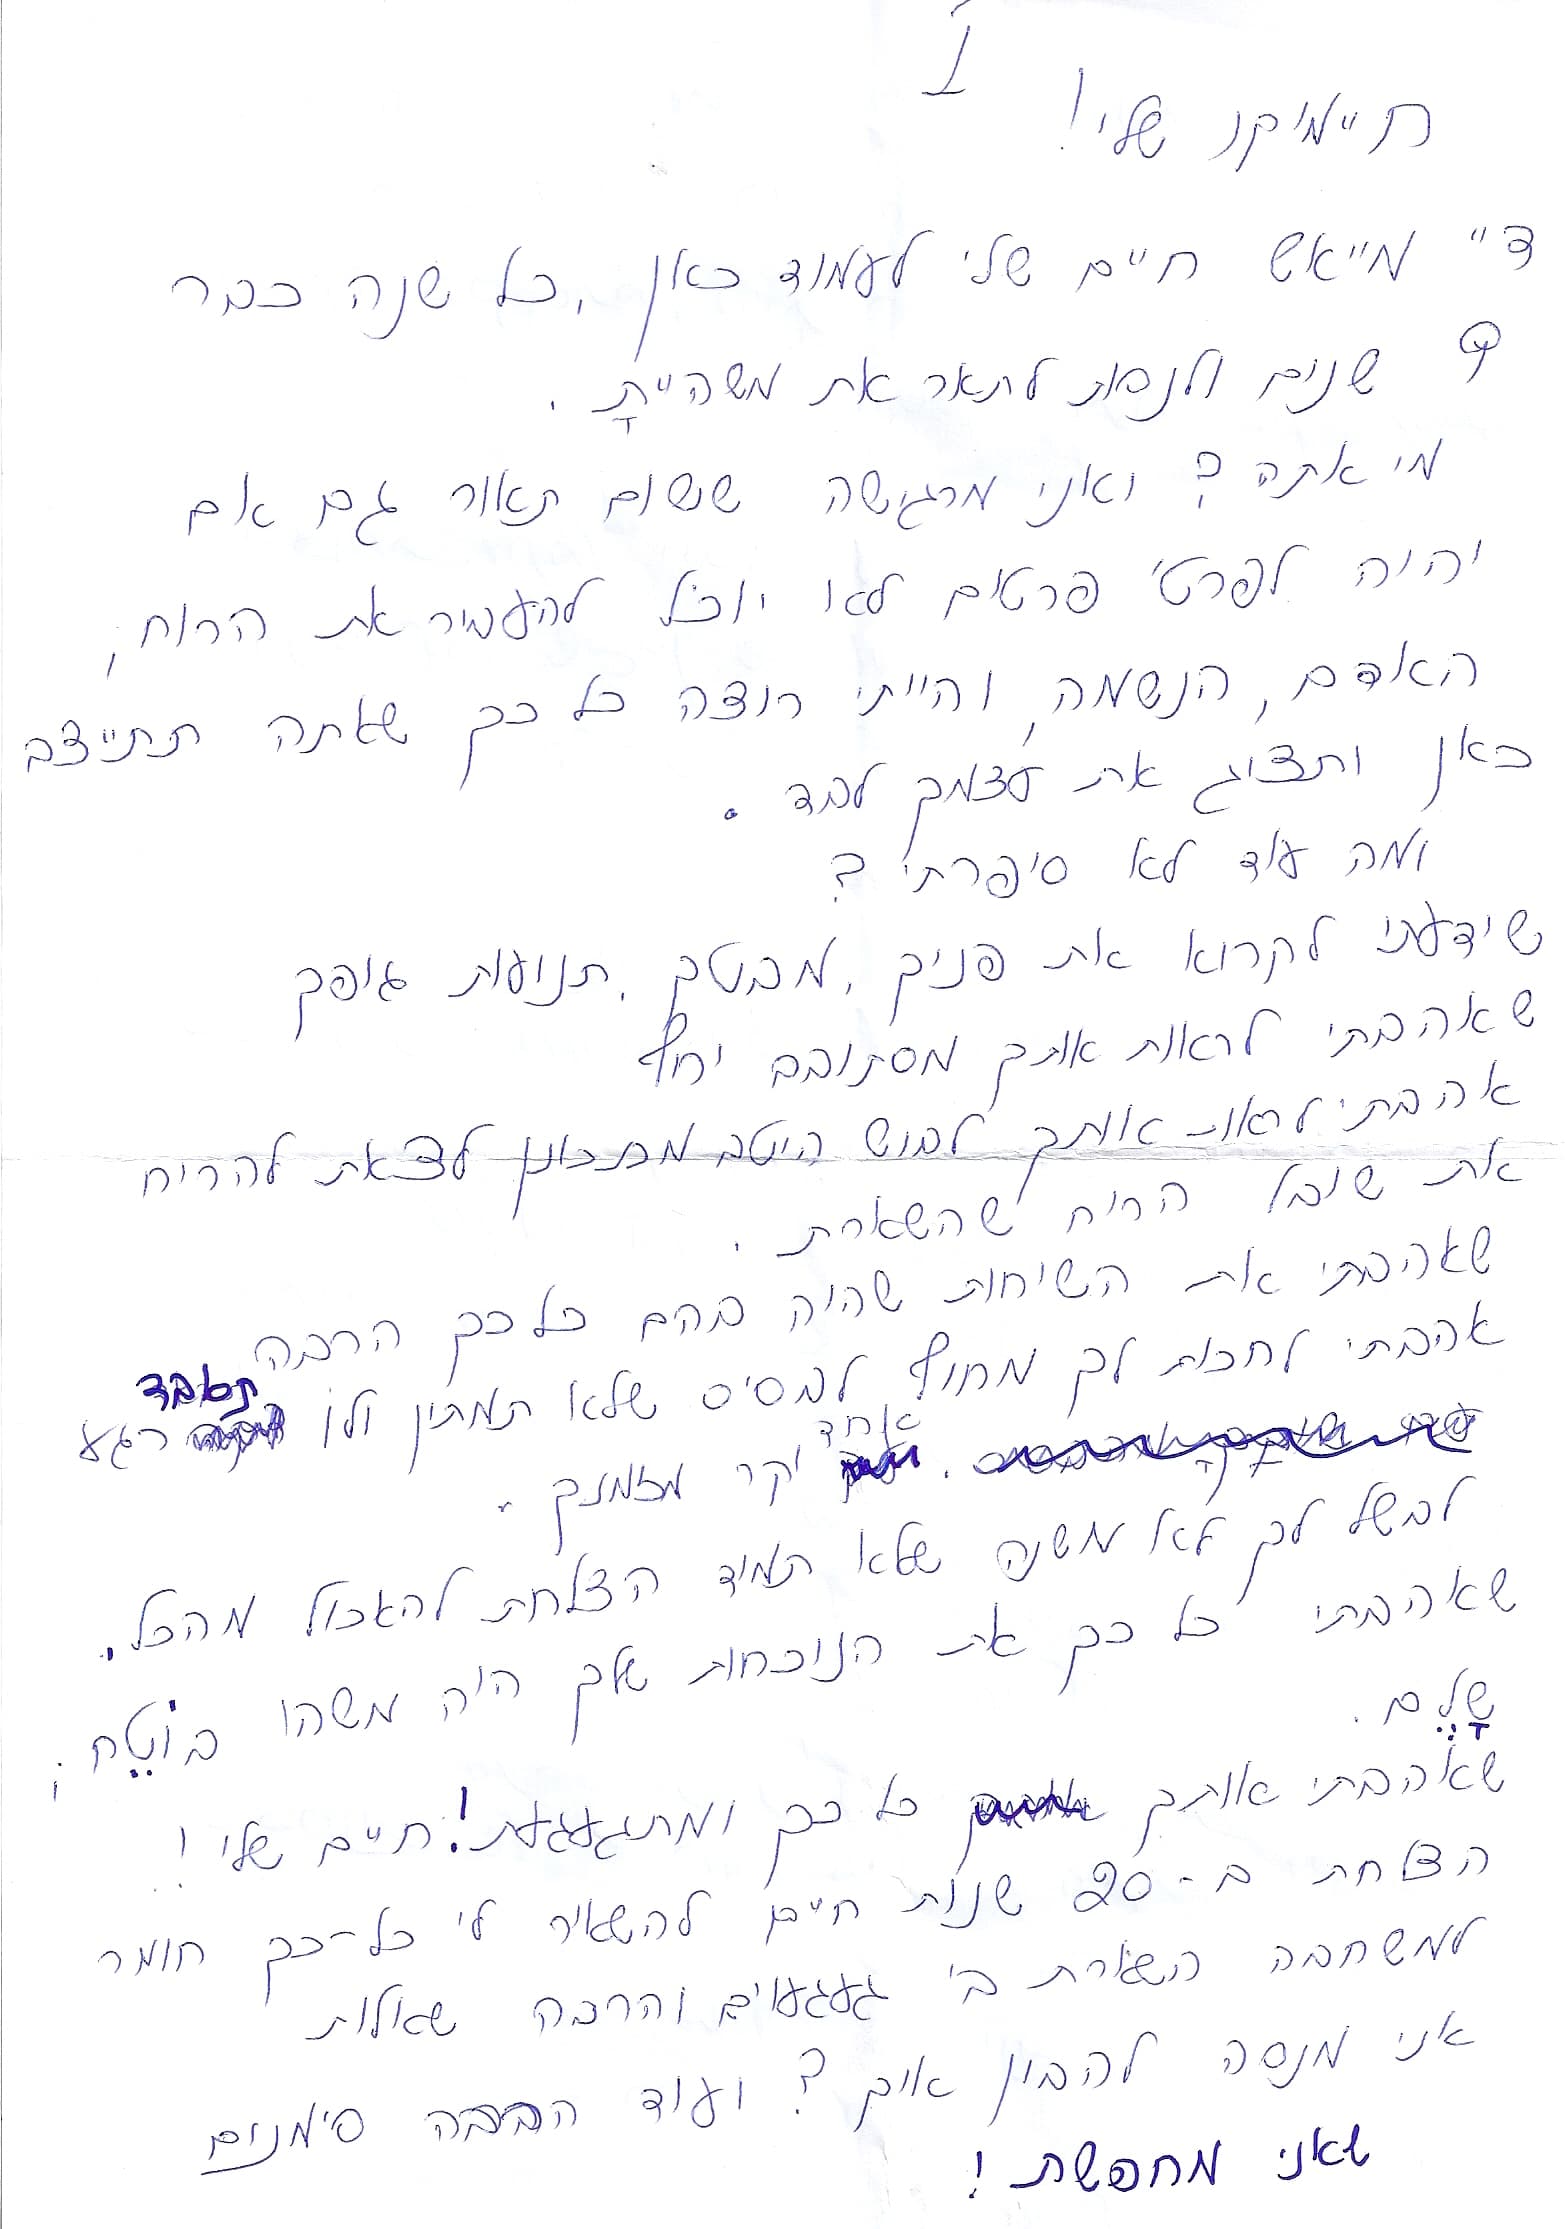 1
חיימיקו שלי!
די מייאש חיים שלי לעמוד כאן, כל שנה כבר
9 שנים ולנסות לתאר את משהייתָ.
מי אתה? ואני מרגישה ששום תאור גם אם
יהיה לפרטי פרטים לא יוכל להעביר את הרוח,
האדם, הנשמה, והייתי רוצה כל כך שאתה תתייצב
כאן ותציג את עצמך לבד.
ומה עוד לא סיפרתי?
שידעתי לקרוא את פניך, מבטך, תנועות גופך
שאהבתי לראות אותך מסתובב יחף
אהבתי לראות אותך לבוש היטב מתכונן לצאת להריח
את שובל הריח שהשארת.
שאהבתי את השיחות שהיה בהם כל כך הרבה
אהבתי לחכות לך מחוץ לבסיס שלא תמתין ולו תאבד רגע
אחד יקר מזמנך.
לבשל לך לא משנה שלא תמיד הצלחת לאכול מהכל.
שאהבתי כל כך את הנוכחות שלך היה משהו בוֹטֵח,
שָלֵם.
שאהבתי אותך כל כך ומתגעגעת! חיים שלי!
הצלחת ב-20 שנות חיים להשאיר לי כל-כך חומר
למשחבה השארת בי געגועים והרבה שאלות
אני מנסה להבין איך? ועוד הרבה סימנים
שאני מחפשת!